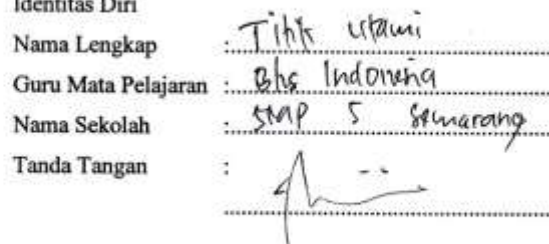 Identitas Diri
Nama Lengkap : Titik Utami
Guru Mata Pelajaran : Bhs Indonesia
Nama Sekolah : SMP 5 Semarang
Tanda Tangan :